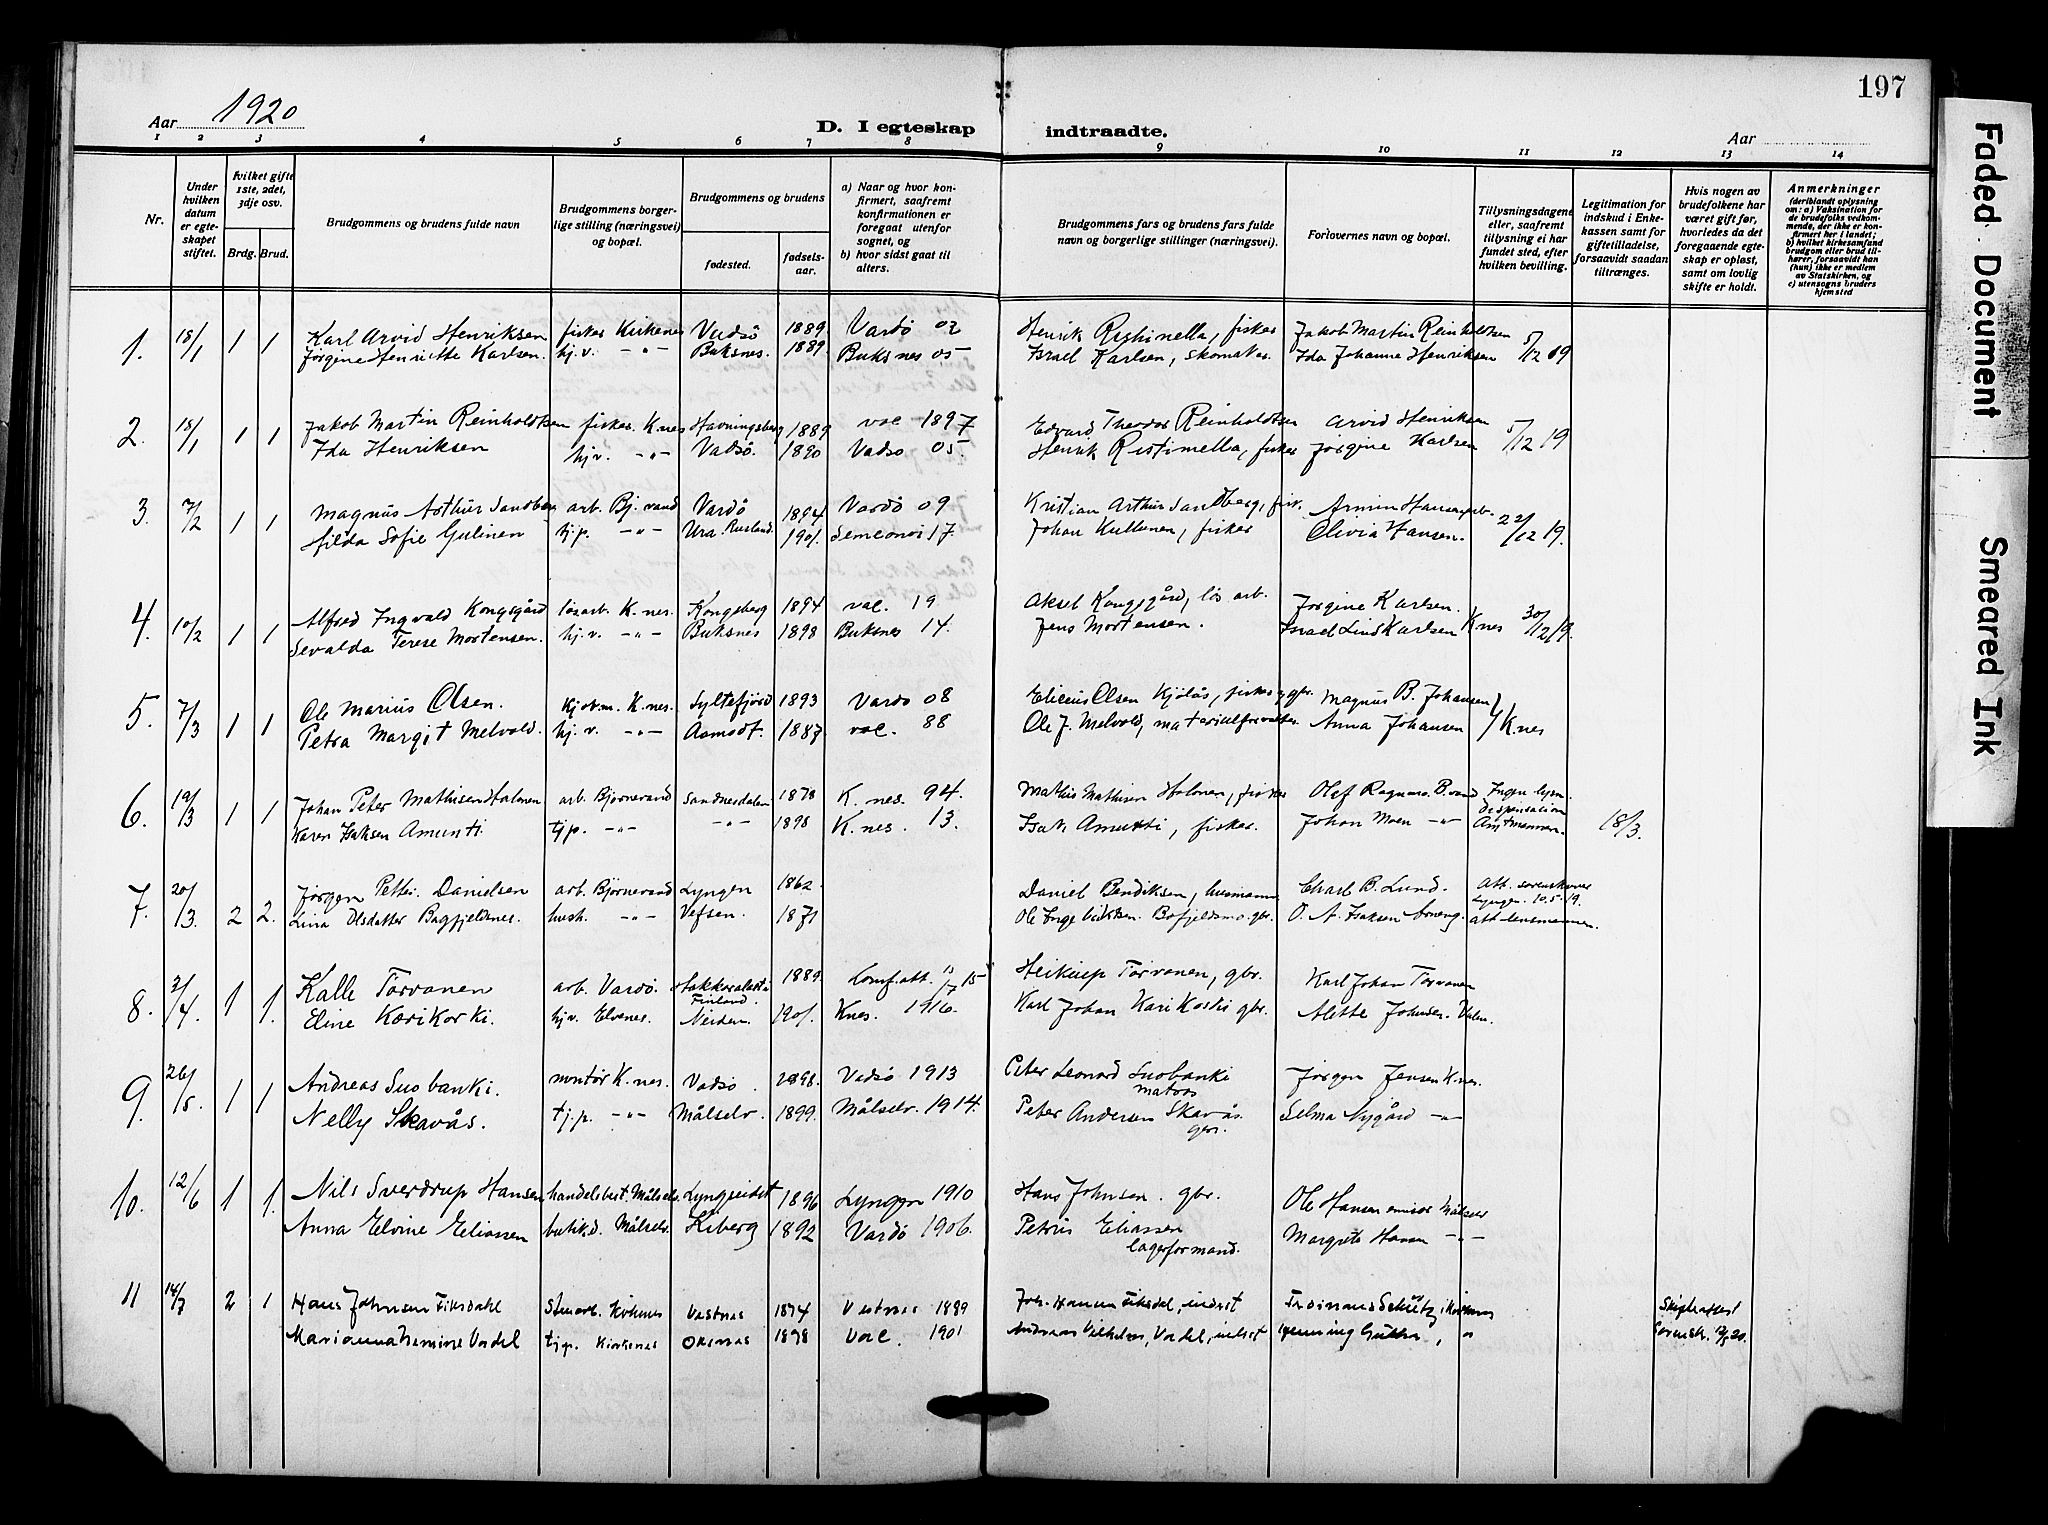 197
Aar 1920
D. I egteskap indtraadte.
Aar
1 2 3 4 5 6 7 8 9 10 11 12 13 14
Nr.
Under hvilken datum er egteskapet stiftet.
hvilket gifte 1ste, 2det, 3dje osv.
Brdg. Brud.
Brudgommens og brudens fulde navn
Brudgommens borgerlige stilling (næringsvei) og bopæl.
Brudgommens og brudens
fødested.
fødselsaar.
a) Naar og hvor konfirmert, saafremt konfirmationen er foregaat utenfor sognet, og
b) hvor sidst gaat til alters.
Brudgommens fars og brudens fars fulde navn og borgerlige stillinger (næringsvei).
Forlovernes navn og bopæl.
Tillysningsdagene eller, saafremt tillysning ei har fundet sted, efter hvilken bevilling.
Legitimation for indskud i Enkekassen samt for giftetilladelse, forsaavidt saadan tiltrænges.
Hvis nogen av brudefolkene har været gift før, hvorledes da det foregaaende egteskap er opløst, samt om lovlig skifte er holdt.
Anmerkninger (deriblandt oplysning om: a) Vaksination for de brudefolks vedkommende, der ikke er konfirmert her i landet; b) hvilket kirkesamfund brudgom eller brud tilhører, forsaavidt han (hun) ikke er medlem av Statskirken, og c) utensogns bruders hjemsted
1. 18/1 1 1 Karl Arvid Henriksen fisker Kirkenes Vadsö 1889. Vardö 02 Henrik fisker Jakob Martin Reinholdtsen 5/12 19
Jørgine Henriette Karlsen. hj.v. -"- Buksnes. 1889 Buksnes 05 Israel Karlsen, skomaker Ida Johanne Henriksen
2. 18/1 1 1 Jakob Martin Reinholdtsen fisker K.nes Havningsberg 1889 voc 1897 Edvard Theodor Reinholdtsen Arvid Henriksen 5/12 19
Ida Henriksen hj.v. -"- Vadsö. 1890 Vadsö 05. Henrik fisker Jørgine Karlsen
3. 7/2 1 1 Magnus Arthur Sandberg arb. Bj.vand Vardö 1894 Vardö 09 Kristian Arthur Sandberg, Armin Hansen 22/12 19.
Hilda Sofie Gulinen tj.p. -"- Ura Rusland. 1901. 17 Johan Kullunen, fisker Olivia Hansen.
4. 10/2 1 1 Alfred Ingvald Kongsgård løsarb. K.nes. Kongsberg 1894 voc. 19 Aksel Kongsgård, løs arb. Jørgine Karlsen. K.nes 30/12 19.
Sevalda Terese Mortensen. hj.v. -"- Buksnes 1898 Buksnes 14. Jens Mortensen. Israel Lind Karlsen
5. 7/3 1 1 Ole Marius Olsen. K.nes. Syltefjord 1893 Vardö 08 Olsen Kjölås, fisker gbr. Magnus B. Johansen K.nes
Petra Margit Melvold. hj.v. -"- Aamodt. 1887 voc. 88 Ole J. Melvold, materialforvalter Anna Johansen
6. 19/3 1 1 Johan Peter Mathisen Holmen arb. Bjørnevand Sandnesdalen 1878 K.nes. 94. Mathis Mathisen Holmen, fisker Olaf Ragnar B.vand Ingen lysn. dispensation Amtmannen.
Karen Isaksen Amunti. tj.p. -"- -"- 1898 K.nes. 13. Isak Amunti, fisker. Johan Moen -"- 18/3.
7. 20/3 2 2. Jørgen Petter Danielsen arb. Bjørnevand Lyngen 1862. Daniel Bendiksen, husmann Charl B. Lund. Att. sorenskriver Lyngen. 10.5.19.
Lina Olsdatter Bagfjeldnes. hush. -"- Vefsen. 1871 Ole Ingebriktsen Bafjeldmo gbr. O. A. Isaksen att. lensmannen.
8. 2/4. 1 1. Kalle Torvanen arb. Vardö. Finland. 1889. Konf.att. 15 Torvanen, gbr. Karl Johan Torvanen
Eline Karikoski. hj.v. Elvenes. Neiden 1901. K.nes. 1916. Karl Johan Karikoski gbr. Alette Johnsen.
9. 26/5. 1 1 Andreas Suobanki. montør K.nes. Vadsö. 1898. Vadsö 1913 Peter Leonard Suobanki matros Jørgen Jensen K.nes.
Nelly Skavås. tj.p. -"- Målselv. 1899. Målselv. 1914. Peter Andersen Skavås. gbr. Selma Nygård -"-
10. 12/6 1 1. Nils Sverdrup Hansen handelsbest. Målselv. Lyngseidet 1896 Lyngen 1910 Hans Johnsen. gbr. Ole Hansen Målselv
Anna Elvine Eliassen butikd. Målselv. Kiberg 1892 Vardö 1906. Petrus Eliassen lagerformand. Margrete Hansen -"-
11 14/7 2 1 Hans Johnsen Fiksdahl Stenarb. Kirkenes Vestnes 1874 Vestnes 1889 Joh. Hansen Fiksdal, inderst Ferdinand Schütz, Kirkenes Skifteattest Sorenskr.
Marianna Vordel tj.p. Kirkenes Oksnes 1898 Voc. 1901 Andreas Vilhelm Vordel, inderst Henning "
Faded Document
Smeared Ink